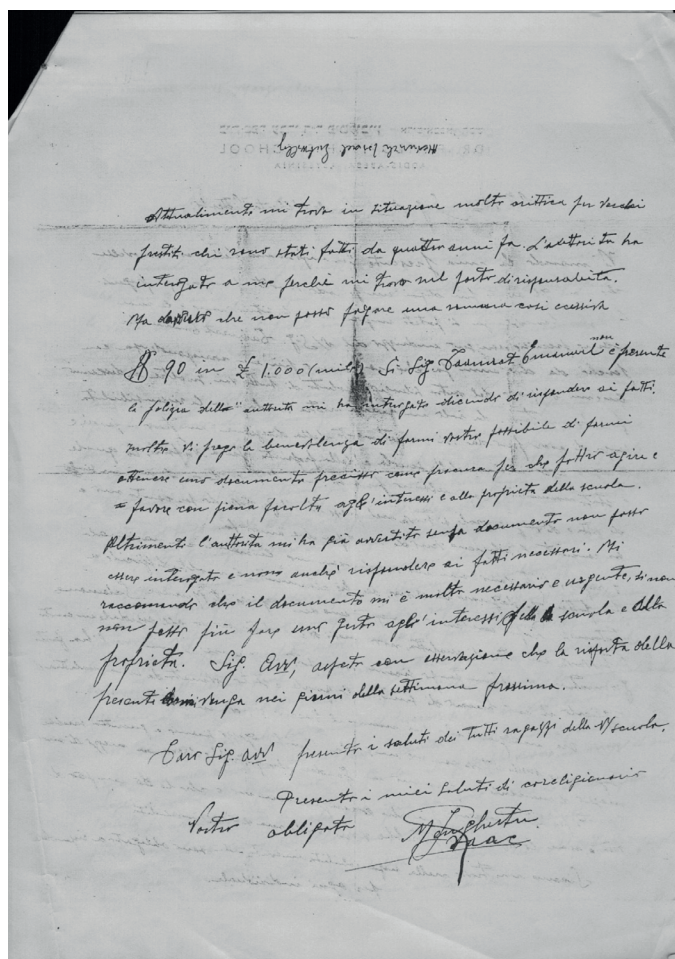 Attualimento mi trovo in situazione molto crittica per vecchi
prestiti chi sono stati fatti da quattro anni fa. L'autorita ha
interogato a me perchè mi trovo nel posto di risponsabilità.
Ma che non posso pagare una somma cosi ecessiva
90 in £ 1.000 (mille) Si Sig. Taamrat Emanuel non è presente
la polizia della autorita mi ha interogato dicendo di rispondere ai fatti.
molto vi prego la benevolenza di farmi vostro possibile di farmi
ottenere uno documento precisso come procura per che possio agire e
= favore con piena facolta agl'interessi e alla proprieta della scuola.
Altrimento l'autorita mi ha già avvertito senza documento non posso
essere interogato e nono anchè rispondere ai fatti necessari. Mi
raccomando che il documento mi è molto necessario e urgente, si non
non posso più fare uno gesto agl'interessi della scuola e della
proprieta. Sig. Avv, aspeto con osservazione che la risposta della
presente venga nei giorni della settimana prossima.
Caro Sig. Avv presento i saluti dei tutti ragazzi della V/ scuola,
Presento i miei saluti di coreligionario
Vostro obbligato
Isaac